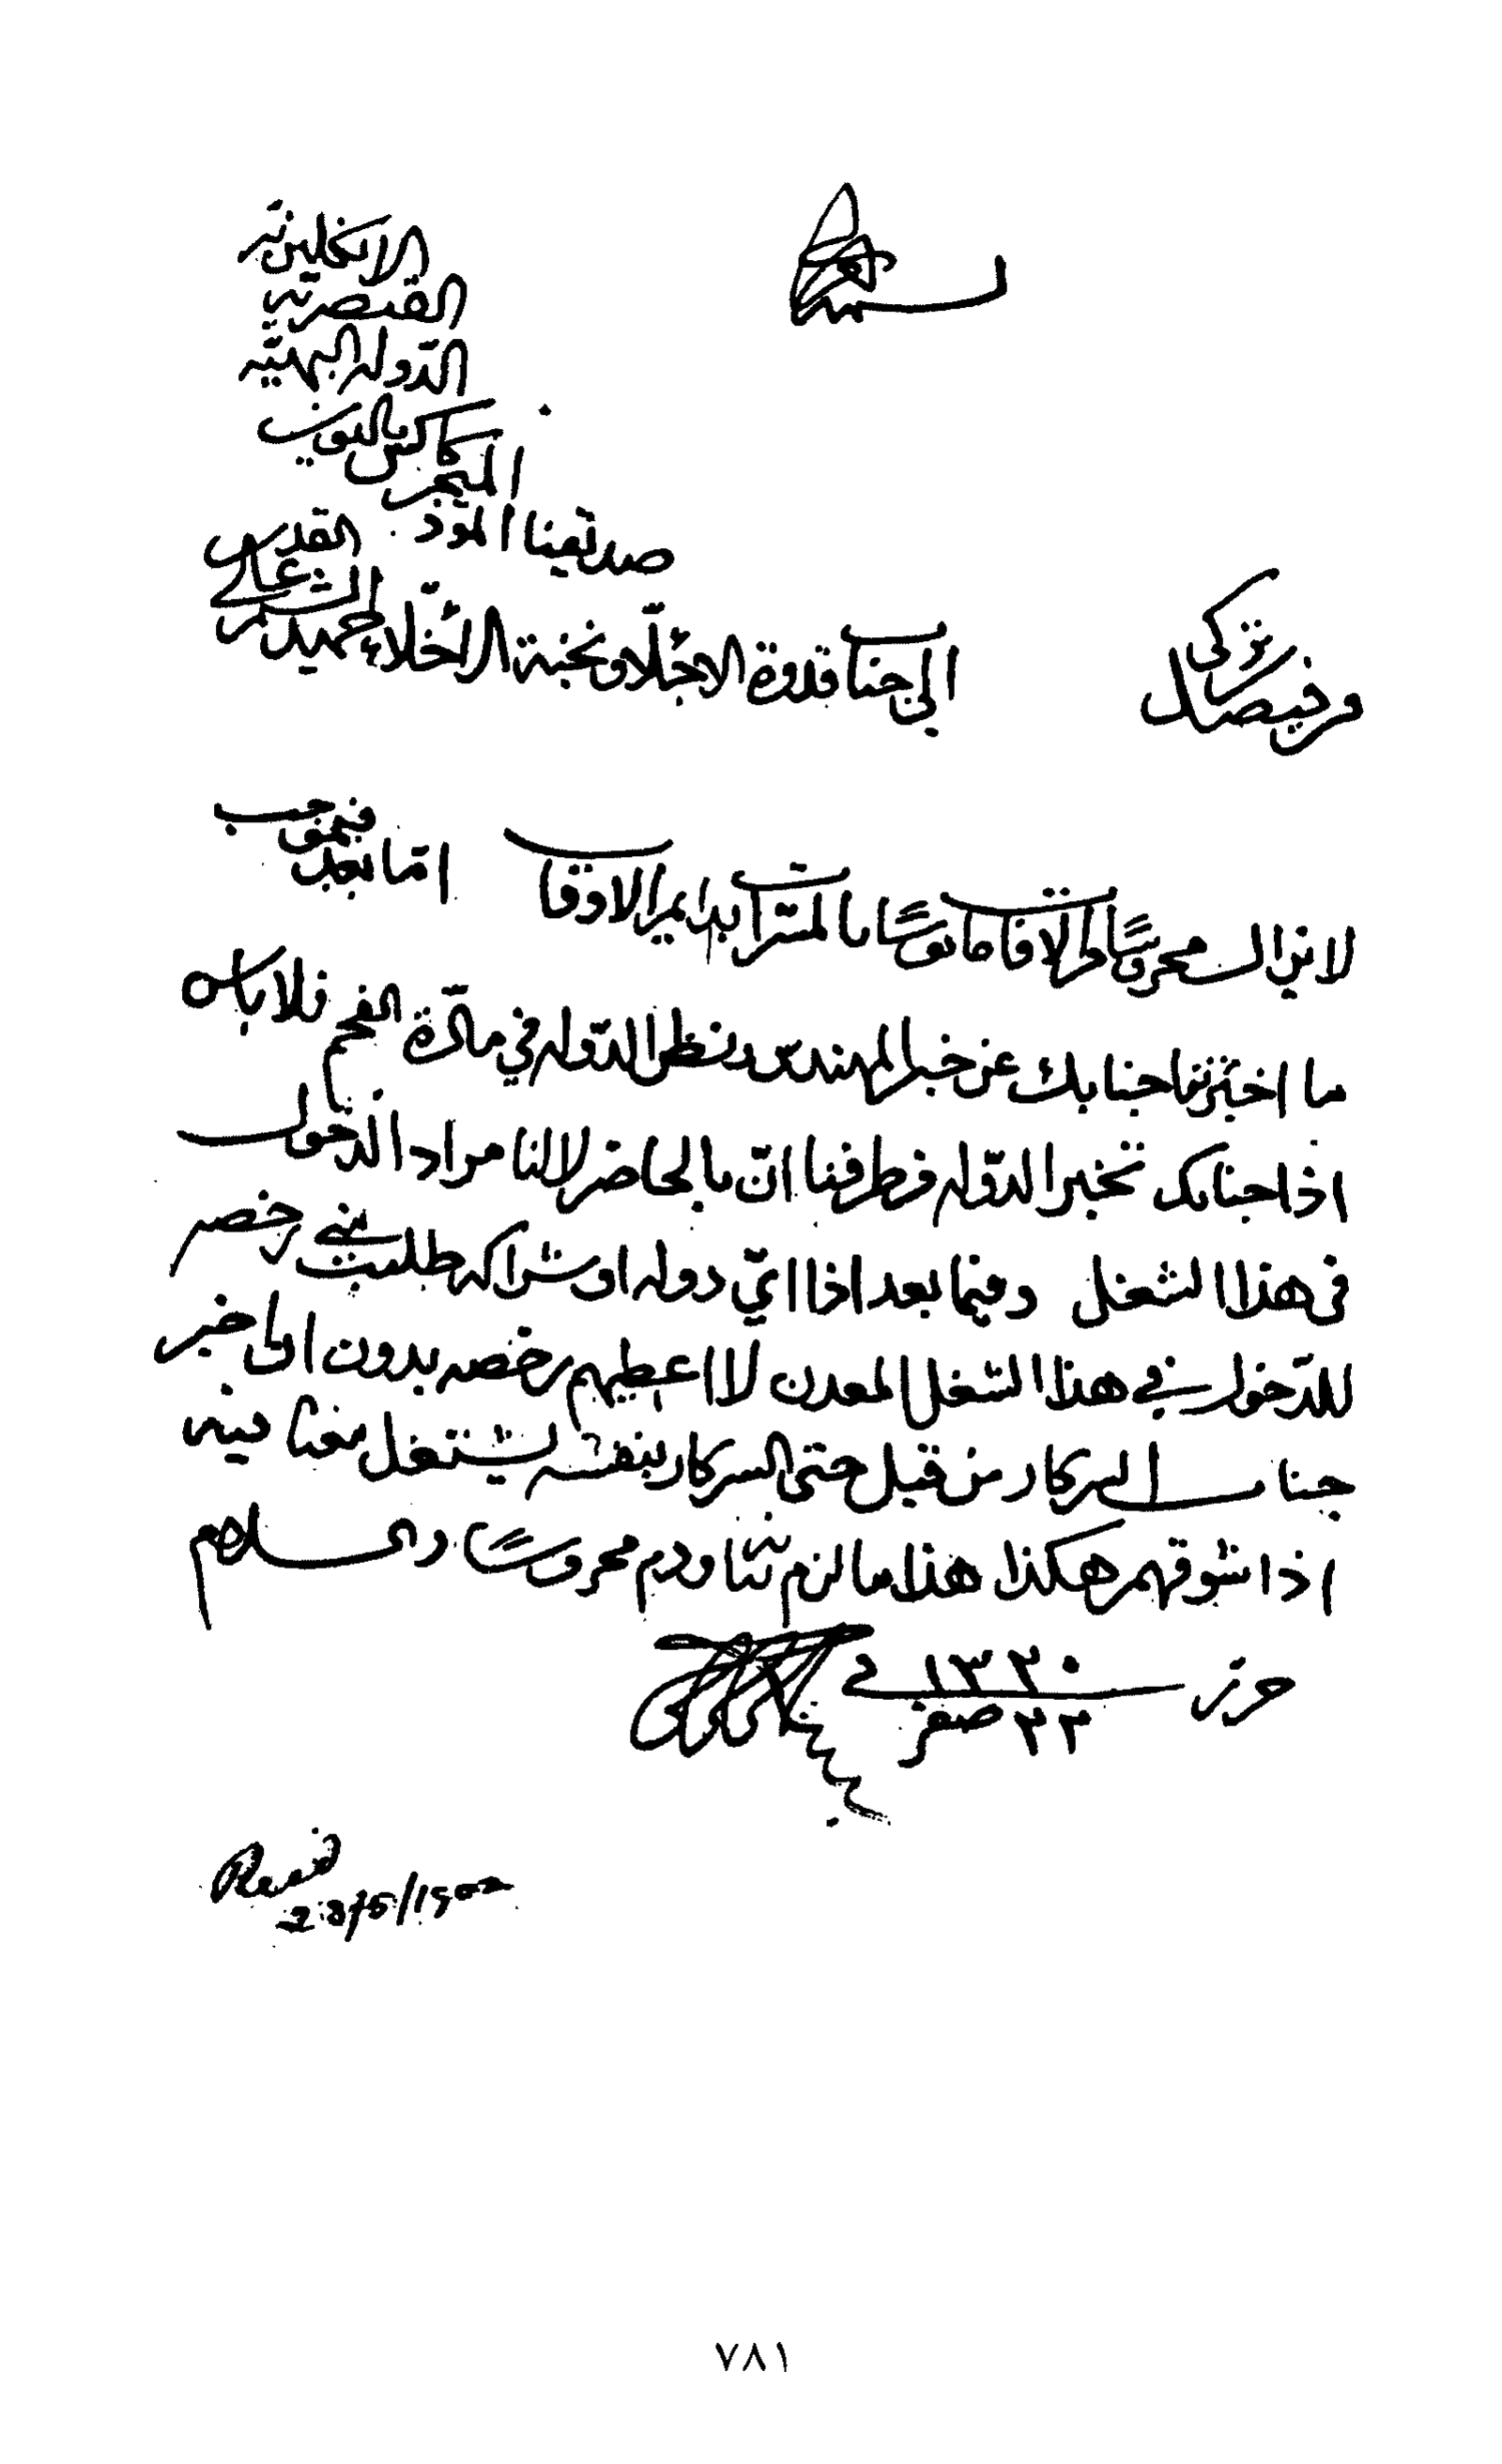 بسم الله
من فيصل بن تركي
الى جناب قدوة الاجلاء ونخبة الاخلاء حميد الشيم عالي القدر
صديقنا الموّد
الميجر كاكس باليوز
الدّولة البهيّة
القيصرية
الانكليزية
لا يزال محروسًا من الآفات مانوسًا بالمسرّات بدايم الاوقات امّا بعد فبموجب
ما اخبرتنا جنابك عن خبر المهندس ونظر الدّوله في مادّة الفحم فلا باس
اذا جنابك تخبر الدّوله من طرفنا انّ بالحاضر لا لنا مراد الدّخول
في هذا الشغل وفيما بعد اذا ايّ دوله او شراكه طلبت مني رخصه
للدّخول في هذا الشغل المعدن لا اعطيهم رخصه بدون اولا خبر
جناب السركار من قبل حتى السركار بنفسه يشتغل معنا فيه
اذا شوقهم هكذا هذا ما لزم بيانه ودم محروسًا والسلام
حرر في ٢٣ صفر ١٣٢٠
Recd
2/6/1902
٧٨١